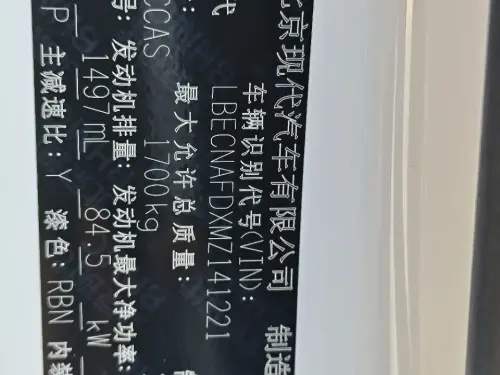 北京现代汽车有限公司 制造
车辆识别代号(VIN):
代 LBECNAFDXMZ141221
: 最大允许总质量:
CCAS 1700kg
号: 发动机排量: 发动机最大净功率:
1497mL 84.5 kW
P 主减速比: Y 漆色: RBN 内装